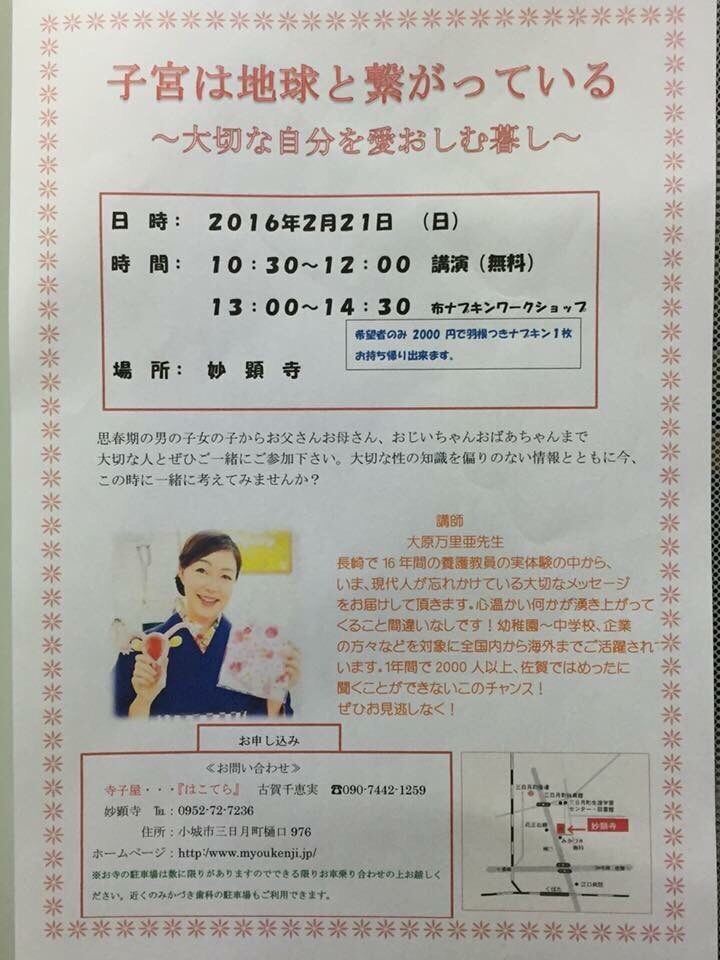 子宮は地球と繋がっている
～大切な自分を愛おしむ暮し～
日 時： 2016年2月21日 （日）
時 間： 10：30～12：00 講演（無料）
13：00～14：30 布ナプキンワークショップ
希望者のみ 2000 円で羽根つきナプキン1枚
お持ち帰り出来ます。
場 所： 妙 顕 寺
思春期の男の子女の子からお父さんお母さん、おじいちゃんおばあちゃんまで
大切な人とぜひご一緒にご参加下さい。大切な性の知識を偏りのない情報とともに今、
この時に一緒に考えてみませんか？
講師
大原万里亜先生
長崎で16年間の養護教員の実体験の中から、
いま、現代人が忘れかけている大切なメッセージ
をお届けして頂きます。心温かい何かが湧き上がって
くること間違いなしです！幼稚園～中学校、企業
の方々などを対象に全国内から海外までご活躍され
います。1年間で2000人以上、佐賀ではめったに
聞くことができないこのチャンス！
ぜひお見逃しなく！
お申し込み
≪お問い合わせ≫
寺子屋・・・『はこてら』 古賀千恵実 ☎090-7442-1259
妙顕寺 ℡：0952-72-7236
住所：小城市三日月町樋口976
ホームページ：http:/www.myoukenji.jp/
※お寺の駐車場は数に限りがありますのでできる限りお車乗り合わせの上お越しく
ださい。近くのみかづき歯科の駐車場もご利用できます。
三日月町生涯学習
センター・図書館
妙顕寺
みかづき
歯科
江口病院
くぼた